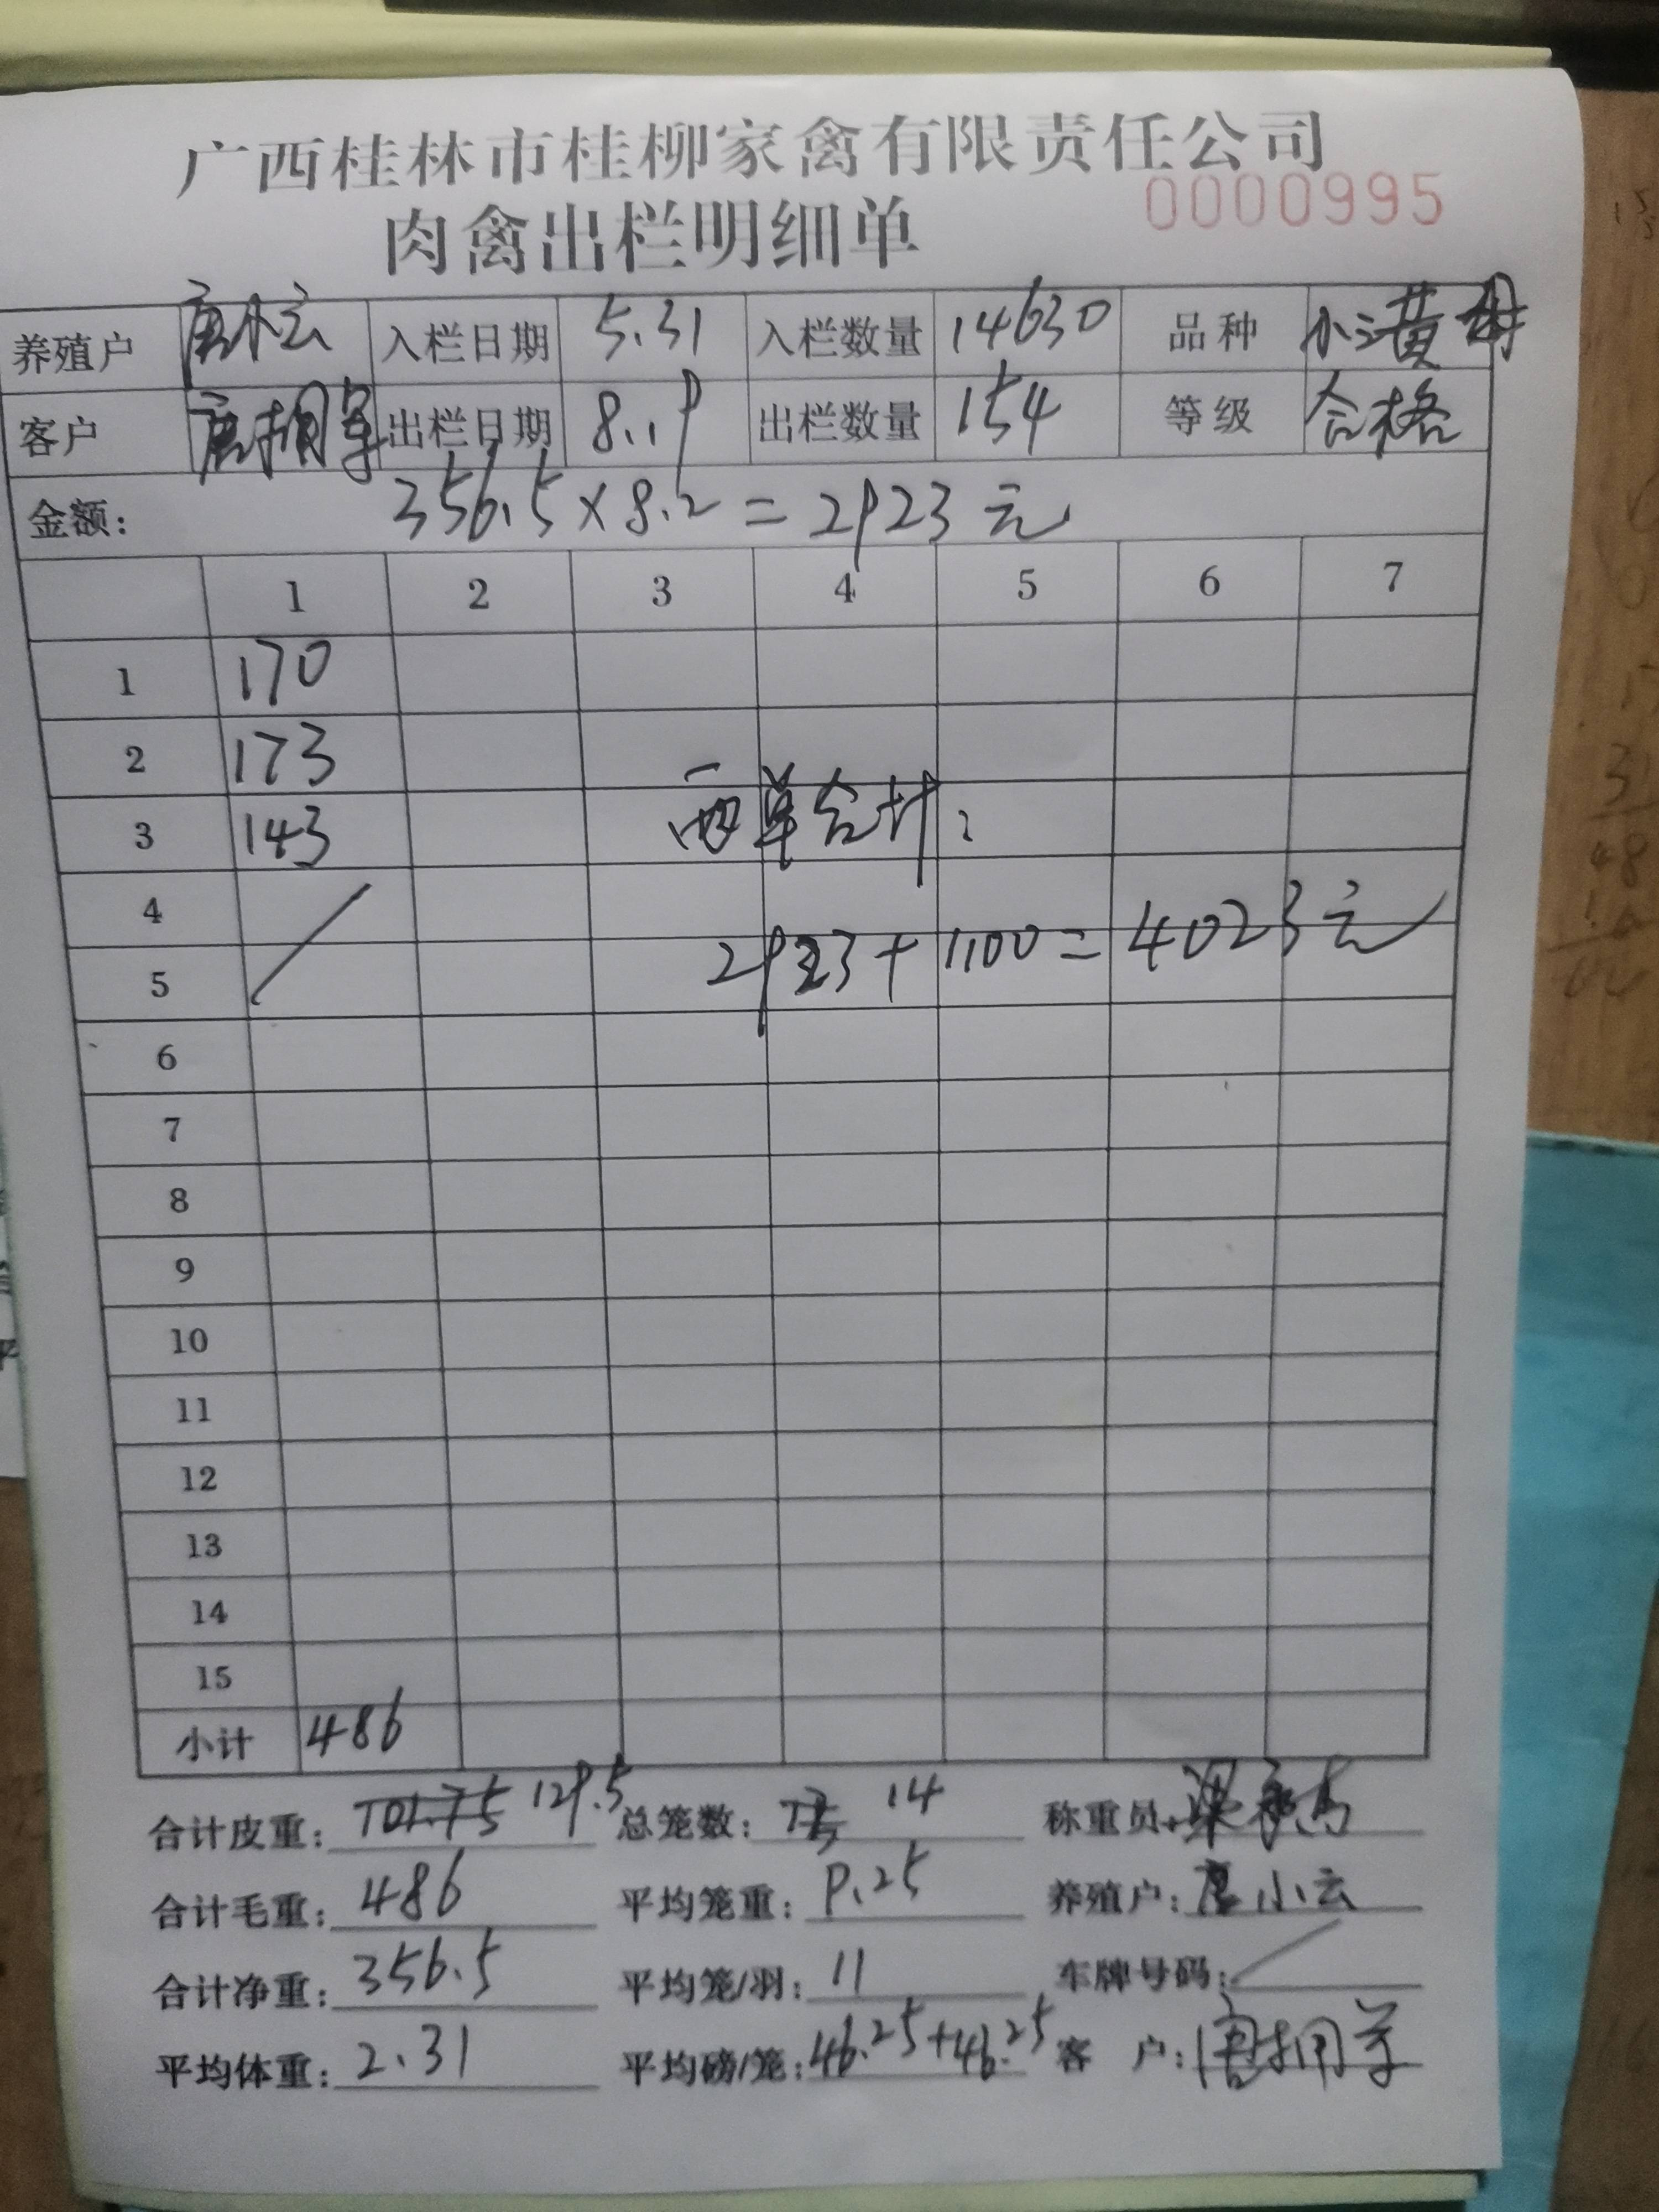 广西桂林市桂柳家禽有限责任公司
肉禽出栏明细单 0000995
养殖户 唐小云 入栏日期 5.31 入栏数量 14630 品种 小三黄母
客户 唐拥军 出栏日期 8.19 出栏数量 154 等级 合格
金额: 356.5×8.2=2923元
1 2 3 4 5 6 7
1 170
2 173
3 143 两单合计:
4
5 2923+1100=4023元
6
7
8
9
10
11
12
13
14
15
小计 486
合计皮重: 129.5 总笼数: 14 称重员:
合计毛重: 486 平均笼重: 9.25 养殖户: 唐小云
合计净重: 356.5 平均笼/羽: 11 车牌号码:
平均体重: 2.31 平均磅/笼: 46.25+46.25 客 户: 唐拥军